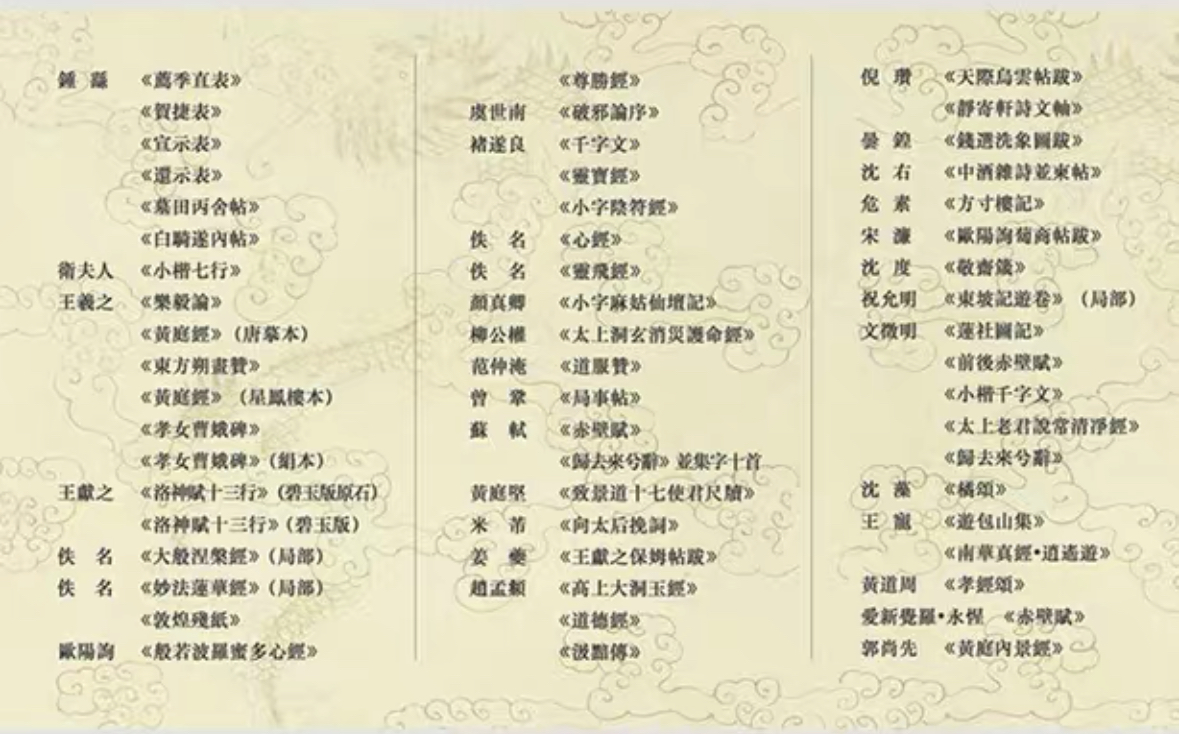 鍾 繇 《薦季直表》
《賀捷表》
《宣示表》
《還示表》
《墓田丙舍帖》
《白騎遂內帖》
衛夫人 《小楷七行》
王羲之 《樂毅論》
《黃庭經》（唐摹本）
《東方朔畫贊》
《黃庭經》（星鳳樓本）
《孝女曹娥碑》
《孝女曹娥碑》（絹本）
王獻之 《洛神賦十三行》（碧玉版原石）
《洛神賦十三行》（碧玉版）
佚 名 《大般涅槃經》（局部）
佚 名 《妙法蓮華經》（局部）
《敦煌殘紙》
歐陽詢 《般若波羅蜜多心經》
《尊勝經》
虞世南 《破邪論序》
褚遂良 《千字文》
《靈寶經》
《小字陰符經》
佚 名 《心經》
佚 名 《靈飛經》
顏真卿 《小字麻姑仙壇記》
柳公權 《太上洞玄消災護命經》
范仲淹 《道服贊》
曾 鞏 《局事帖》
蘇 軾 《赤壁賦》
《歸去來兮辭》並集字十首
黃庭堅 《致景道十七使君尺牘》
米 芾 《向太后挽詞》
姜 夔 《王獻之保姆帖跋》
趙孟頫 《高上大洞玉經》
《道德經》
《汲黯傳》
倪 瓚 《天際烏雲帖跋》
《靜寄軒詩文軸》
曇 鍠 《錢選洗象圖跋》
沈 右 《中酒雜詩並柬帖》
危 素 《方寸樓記》
宋 濂 《歐陽詢蔔商帖跋》
沈 度 《敬齋箴》
祝允明 《東坡記遊卷》（局部）
文徵明 《蓮社圖記》
《前後赤壁賦》
《小楷千字文》
《太上老君說常清淨經》
《歸去來兮辭》
沈 藻 《橘頌》
王 寵 《遊包山集》
《南華真經•逍遙遊》
黃道周 《孝經頌》
愛新覺羅•永惺 《赤壁賦》
郭尚先 《黃庭內景經》